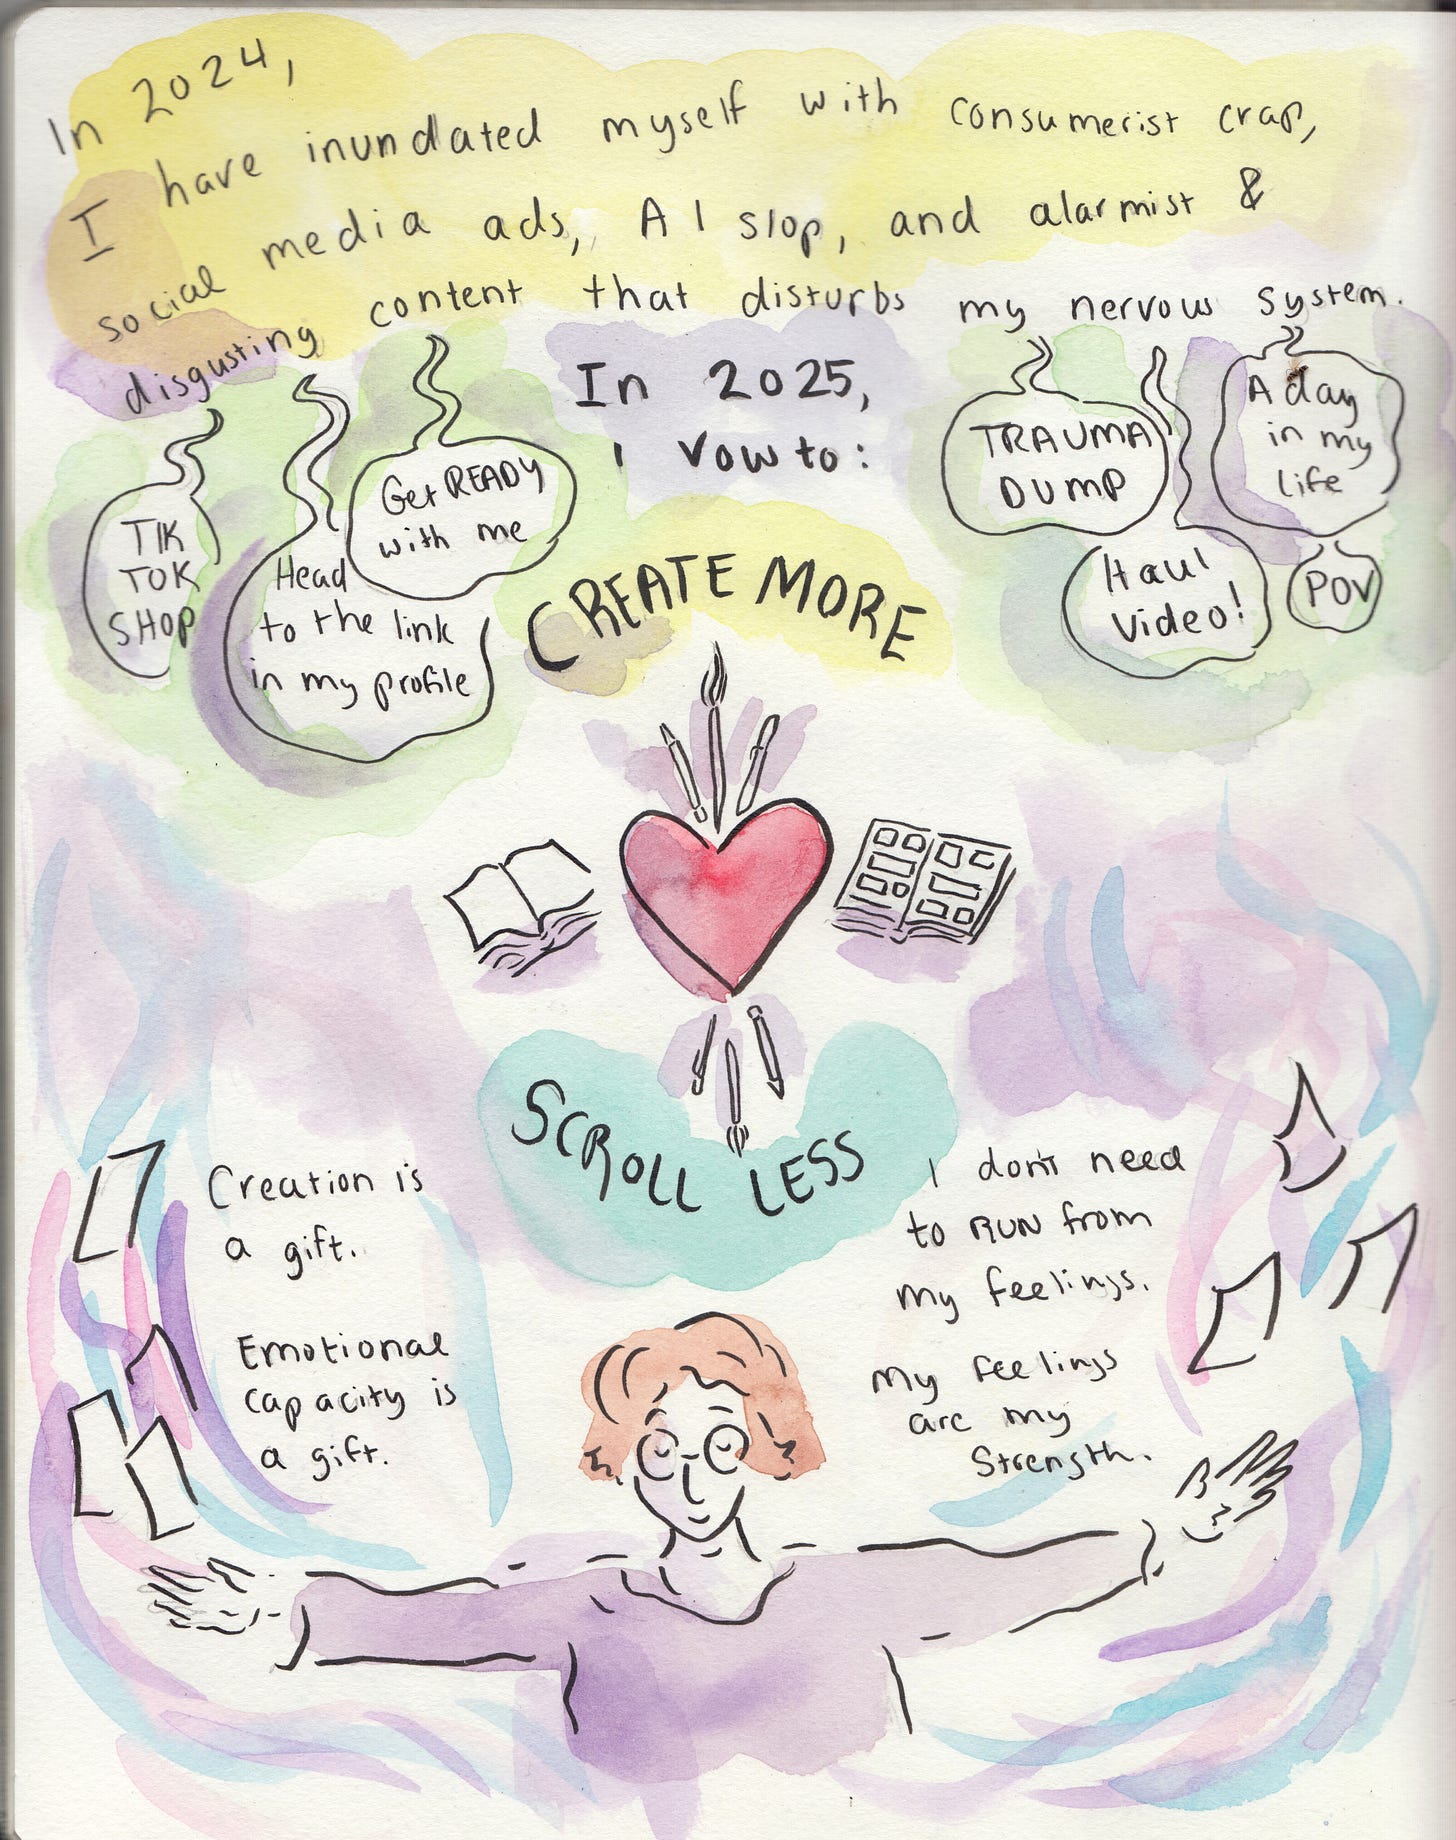 In 2024,
I have inundated myself with consumerist crap,
social media ads, AI slop, and alarmist &
disgusting content that disturbs my nervous system.
TIK
TOK
SHOP
Head
to the link
in my profile
Get READY
with me
In 2025,
I vow to:
TRAUMA
DUMP
A day
in my
life
Haul
video!
POV
CREATE MORE
SCROLL LESS
Creation is
a gift.
Emotional
capacity is
a gift.
I don't need
to RUN from
my feelings.
My feelings
are my
strength.